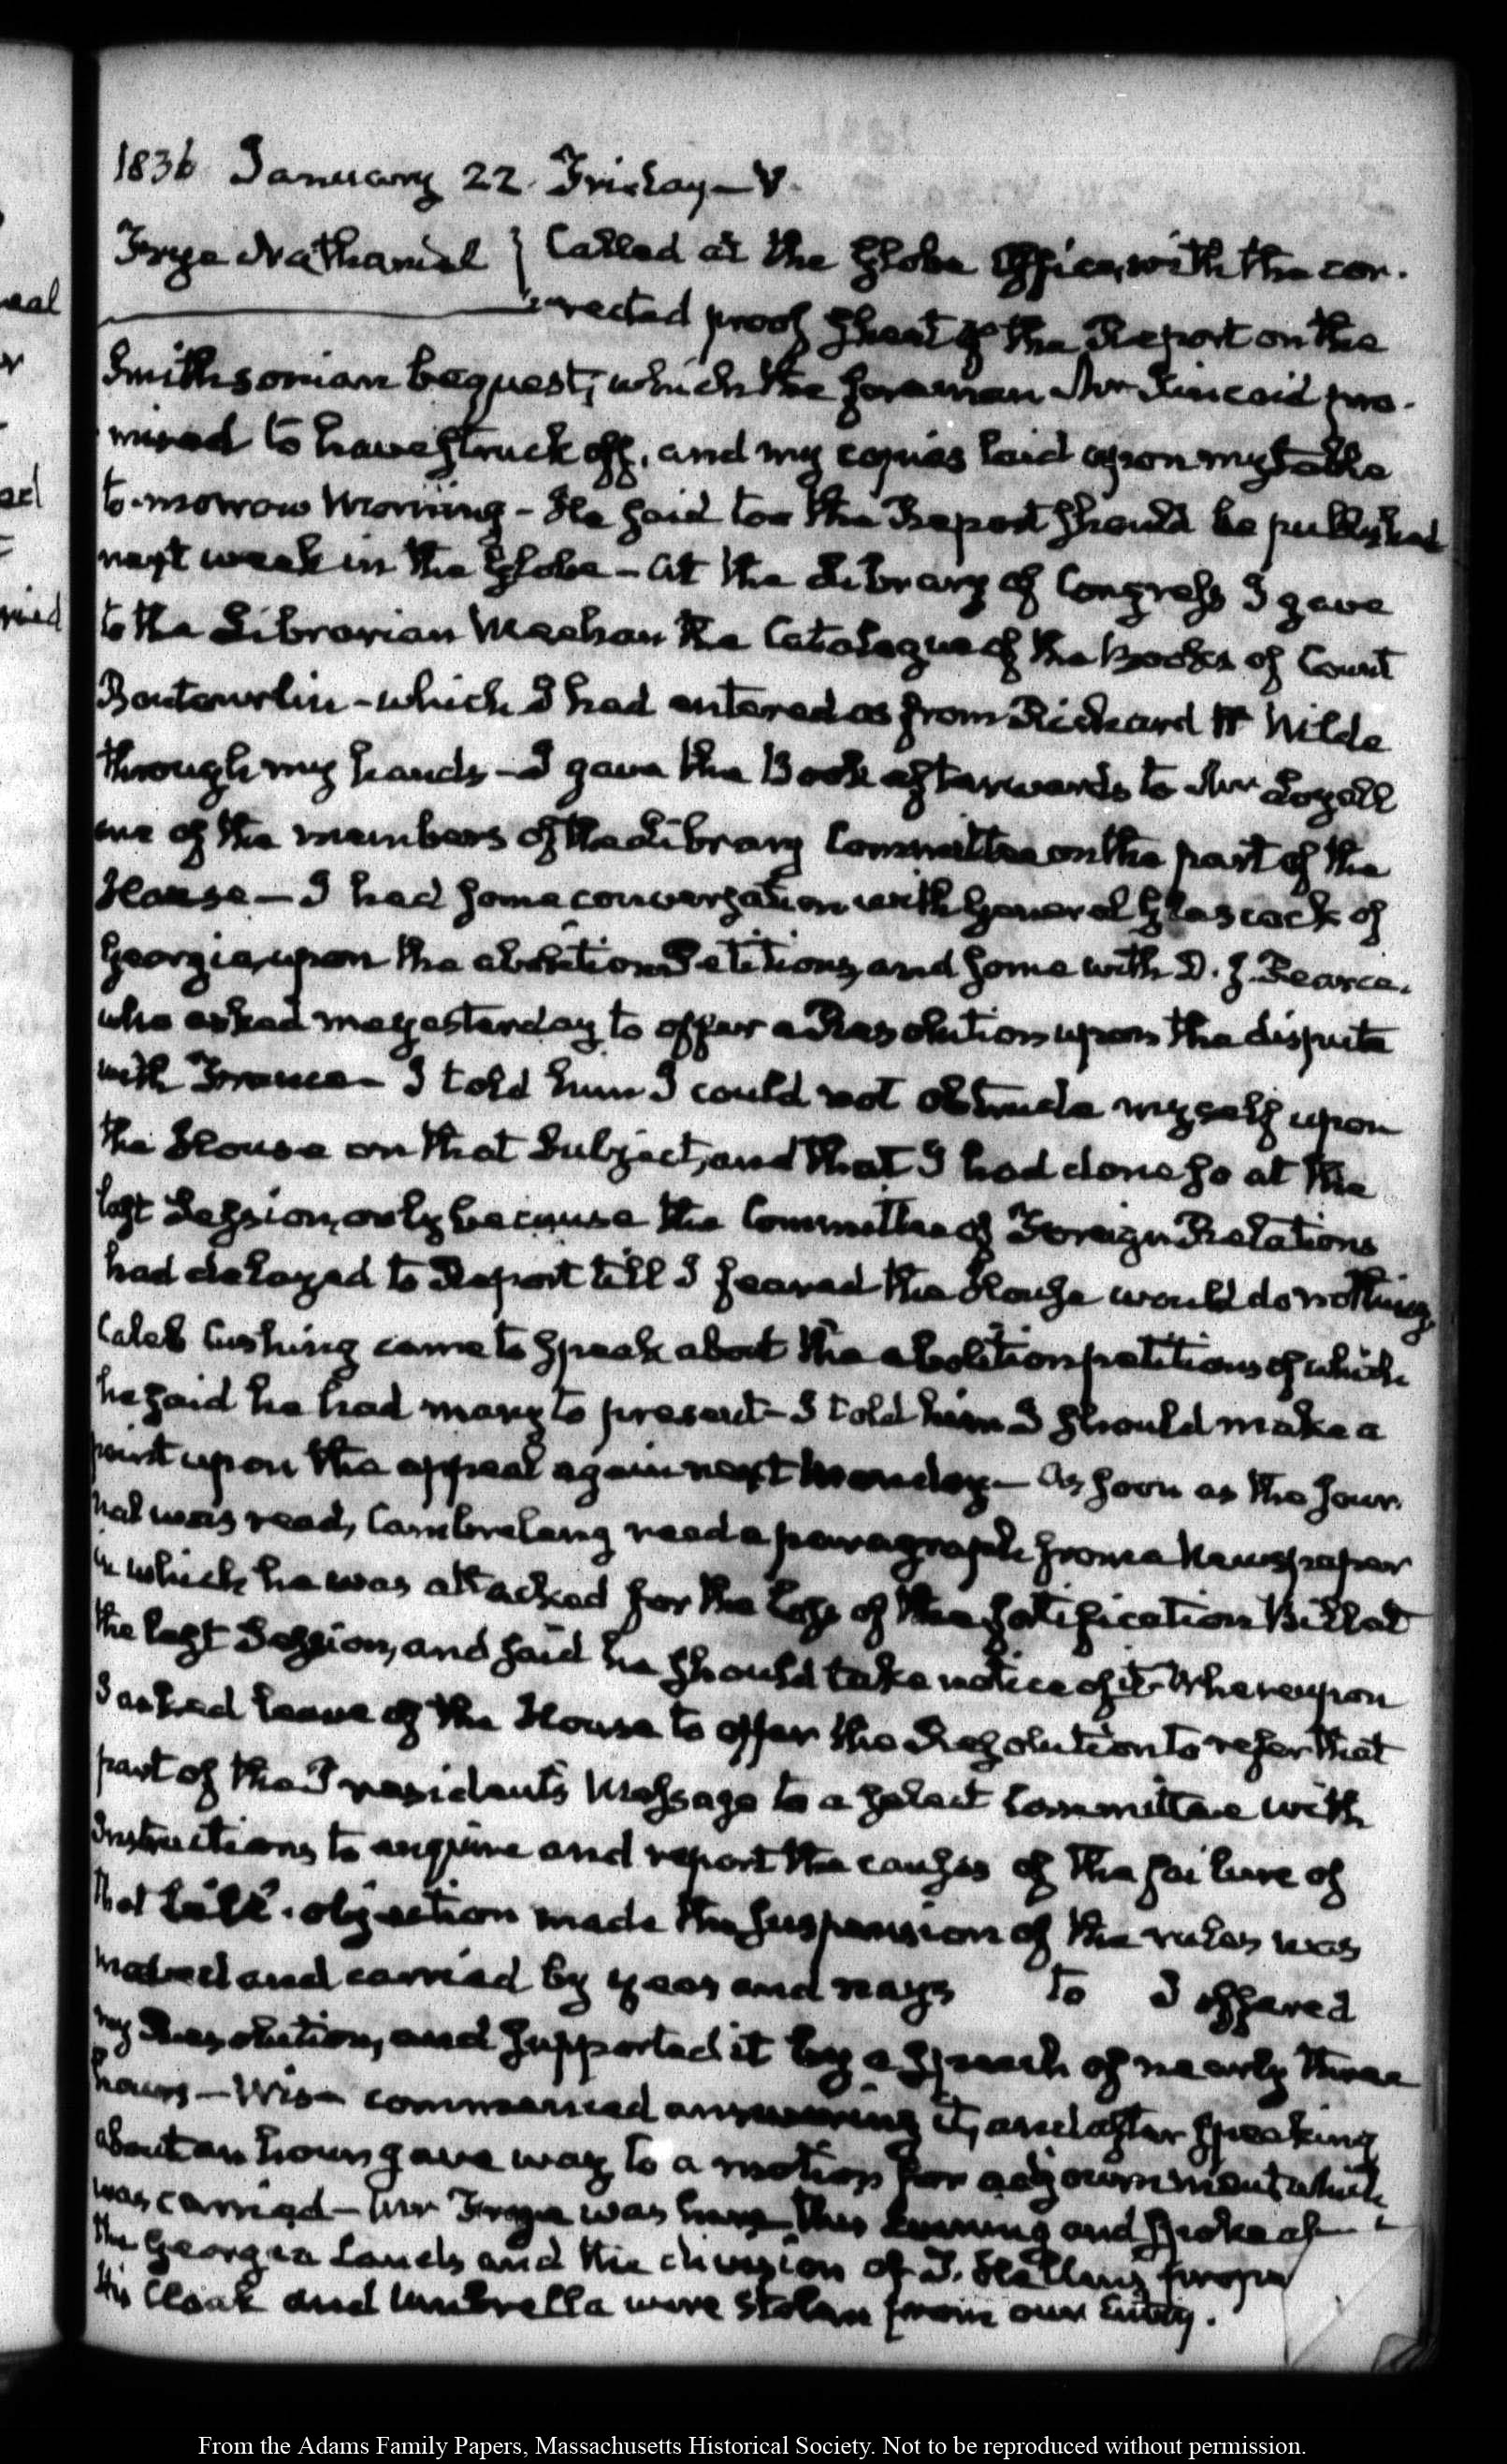 1836 January 22. Friday — V.
Frye Nathaniel } Called at the Globe Office, with the cor-
rected proof sheet of the Report on the
Smithsonian bequest, which the foreman Mr Kincaid pro-
mised to have struck off, and my copies laid upon my table
to-morrow Morning - He said too the Report should be published
next week in the Globe - At the Library of Congress I gave
to the Librarian Meehan the Catalogue of the Books of Count
Boutourlin - which I had entered as from Richard H Wilde
through my hands - I gave the Book afterwards to Mr Loyall
one of the members of the Library Committee on the part of the
House — I had some conversation with General Glascock of
Georgia, upon the abolition Petitions, and some with D. J. Pearce.
who asked me yesterday to offer a Resolution upon the dispute
with France - I told him I could not obtrude myself upon
the House on that Subject, and that I had done so at the
last Session, only because the Committee of Foreign Relations
had delayed to Report till I feared the House would do nothing
Caleb Cushing came to speak about the abolition petitions of which
he said he had many to present - I told him I should make a
point upon the appeal again next Monday — As soon as the Jour-
nal was read, Cambreleng read a paragraph from a Newspaper
in which he was attacked for the loss of the fortification Bill at
the last Session, and said he should take notice of it - Whereupon
I asked leave of the House to offer the Resolution to refer that
part of the Presidents Message to a select Committee with
Instructions to enquire and report the causes of the failure of
that bill. objection made the suspension of the rules was
moved and carried by yeas and nays to I offered
my Resolution, and supported it by a speech of nearly three
hours — Wise commenced answering it, and after speaking
about an hour gave way to a motion for adjournment which
was carried — Mr Frye was here this Evening and spoke of
the Georgia Lands and the division of J. Hellen's
His Cloak and Umbrella were stolen from our Entry.
eal
r
ed
ried
From the Adams Family Papers, Massachusetts Historical Society. Not to be reproduced without permission.